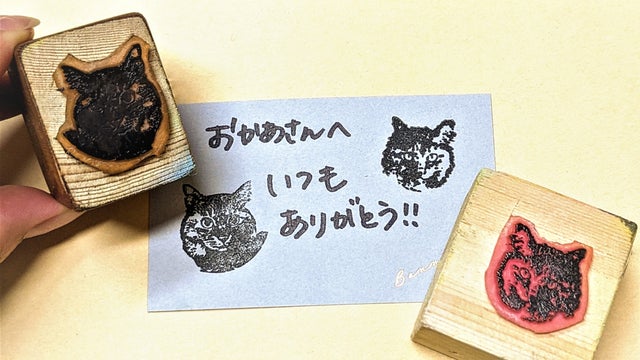 おかあさんへ
いつも
ありがとう!!